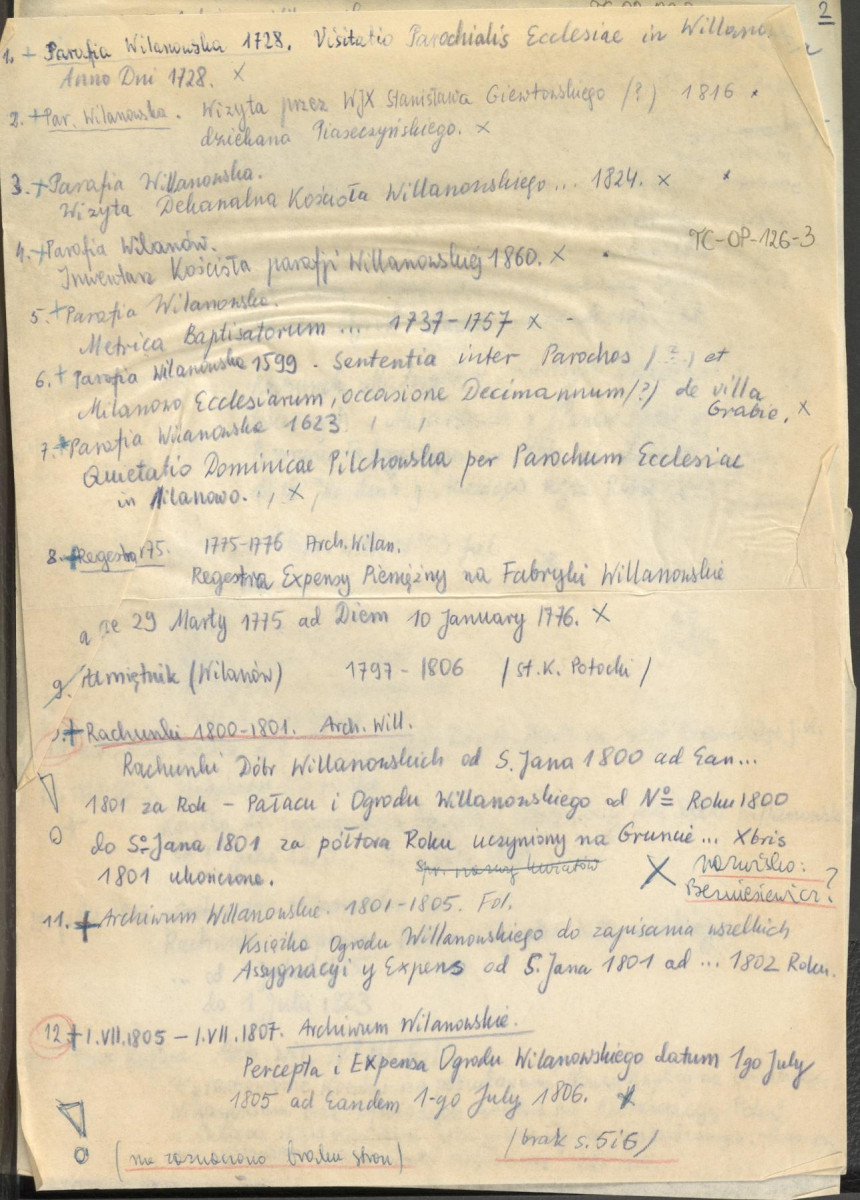 2
1. + Parafia Wilanowska 1728. Visitatio Parochialis Ecclesiae in Willano
Anno Dni 1728. X
2. + Par. Wilanowska. Wizyta przez WJX Stanisława Giewtowskiego /?/ 1816
dziekana Piaseczyńskiego. X
3. + Parafia Willanowska.
Wizyta Dekanalna Kościoła Willanowskiego... 1824. X
4. + Parafia Wilanów.
TC-OP-126-3
Inwentarz Kościoła parafji Willanowskiéj 1860. X
5. + Parafia Wilanowska.
Metrica Baptisatorum ... 1737-1757 X -
6. + Parafia Wilanowska 1599. Sententia inter Parochos /?/ et
Milanowo Ecclesiarum, occasione Decimannum /?/ de villa
Grabie. X
7. + Parafia Wilanowska 1623.
Quietatio Dominicae Pilchowska per Parochum Ecclesiae
in Milanowo. X
8. + Regestra 175. 1775-1776 Arch. Wilan.
Regestra Expensy Pieniężny na Fabryki Willanowskie
a ze 29 Marty 1775 ad Diem 10 January 1776. X
9. Pamiętnik (Wilanów) 1797 - 1806 /St. K. Potocki/
+ Rachunki 1800-1801. Arch. Will.
Rachunki Dóbr Willanowskich od S. Jana 1800 ad Ean...
1801 za Rok - Pałacu i Ogrodu Willanowskiego od No Roku 1800
do So Jana 1801 za półtora Roku uczyniony na Gruncie... Xbris
1801 ukończone. X nazwisko:
Berniesiewicz?
11. + Archiwum Willanowskie. 1801-1805. Fol.
Książka Ogrodu Willanowskiego do zapisania wszelkich
Assygnacyi y Expens od S. Jana 1801 ad ... 1802 Roku.
12 + 1.VII.1805 - 1.VII.1807. Archiwum Wilanowskie.
Percepta i Expensa Ogrodu Wilanowskiego datum 1go July
1805 ad Eandem 1-go July 1806. X
(nie zaznaczono braku stron) /brak s. 5 i 6/